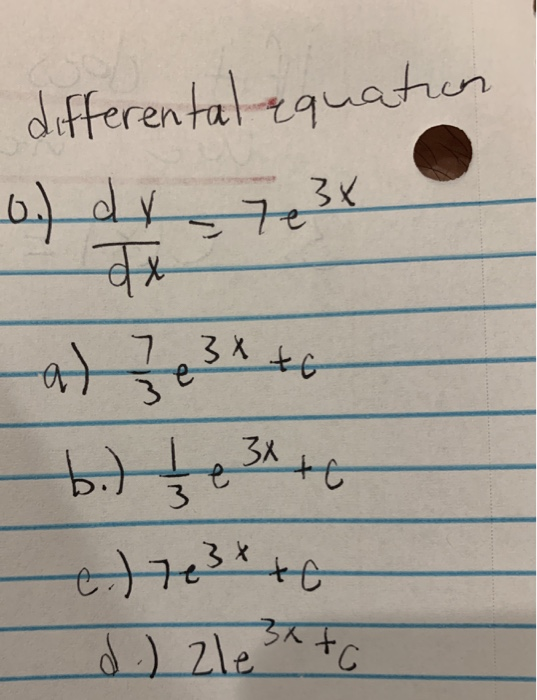 differental equation
0.) dy/dx = 7e^3x
a) 7/3 e^3x + c
b.) 1/3 e^3x + c
c.) 7e^3x + c
d.) 21e^3x + c